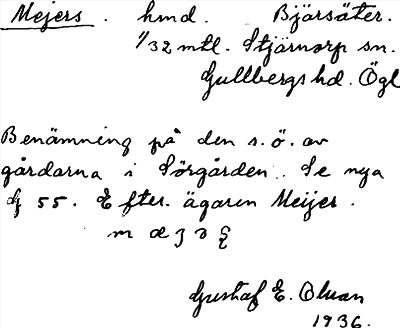 Mejers. hmd. Bjärsäter.
1/32 mtl. Stjärnorp sn.
Gullbergs hd. Ögl
Benämning på den s.ö. av
gårdarna i Sörgården. Se nya
G 55. Efter ägaren Meijer.
Gustaf E. Olsson
1936.